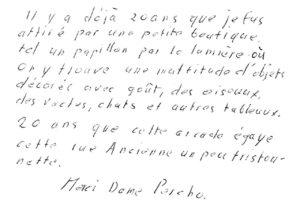 Il y a déjà 20 ans que je fus
attiré par une petite boutique,
tel un papillon par la lumière où
on y trouve une multitude d'objets
décorés avec goût, des oiseaux,
des vaches, chats et autres tableaux.
20 ans que cette arcade égaye
cette rue Ancienne un peu triston-
nette.
Merci Dame Percho.